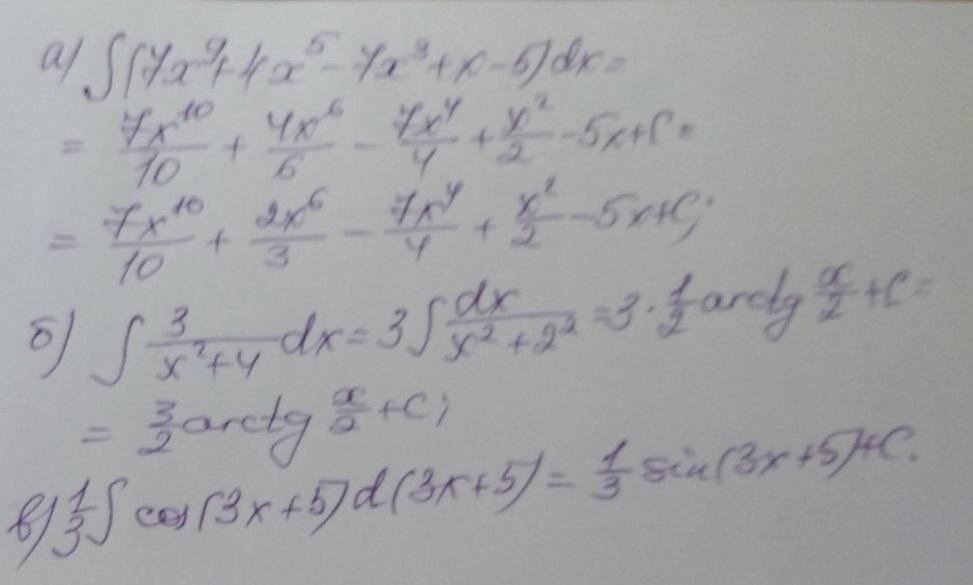 а) ∫(7x⁹+4x⁵-7x³+x-5)dx=
= 7x¹⁰/10 + 4x⁶/6 - 7x⁴/4 + x²/2 - 5x+C=
= 7x¹⁰/10 + 2x⁶/3 - 7x⁴/4 + x²/2 - 5x+C;
б) ∫ 3/(x²+4) dx = 3∫ dx/(x²+2²) = 3·1/2 arctg x/2 + C =
= 3/2 arctg x/2 + C;
в) 1/3 ∫ cos(3x+5)d(3x+5) = 1/3 sin(3x+5)+C.